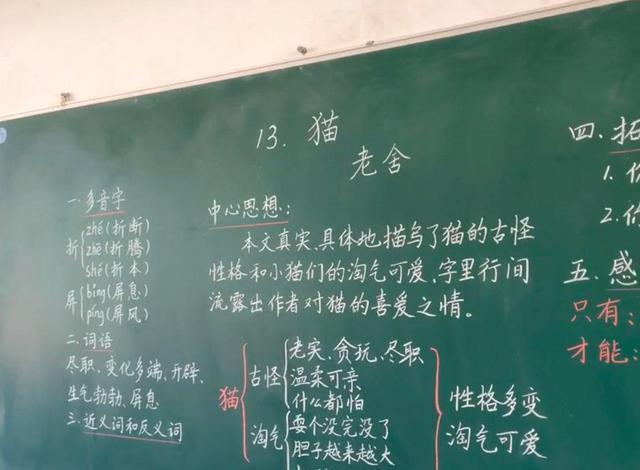 13. 猫
老舍
一.多音字
折
zhé(折断)
zhē(折腾)
shé(折本)
屏
bǐng(屏息)
píng(屏风)
二.词语
尽职、变化多端、开辟、
生气勃勃、屏息
三.近义词和反义词
中心思想:
本文真实、具体地描写了猫的古怪
性格和小猫们的淘气可爱,字里行间
流露出作者对猫的喜爱之情。
猫
古怪
老实、贪玩、尽职
温柔可亲
什么都怕
淘气
耍个没完没了
胆子越来越大
性格多变
淘气可爱
四.拓
1.
2.
五.感
只有:
才能: